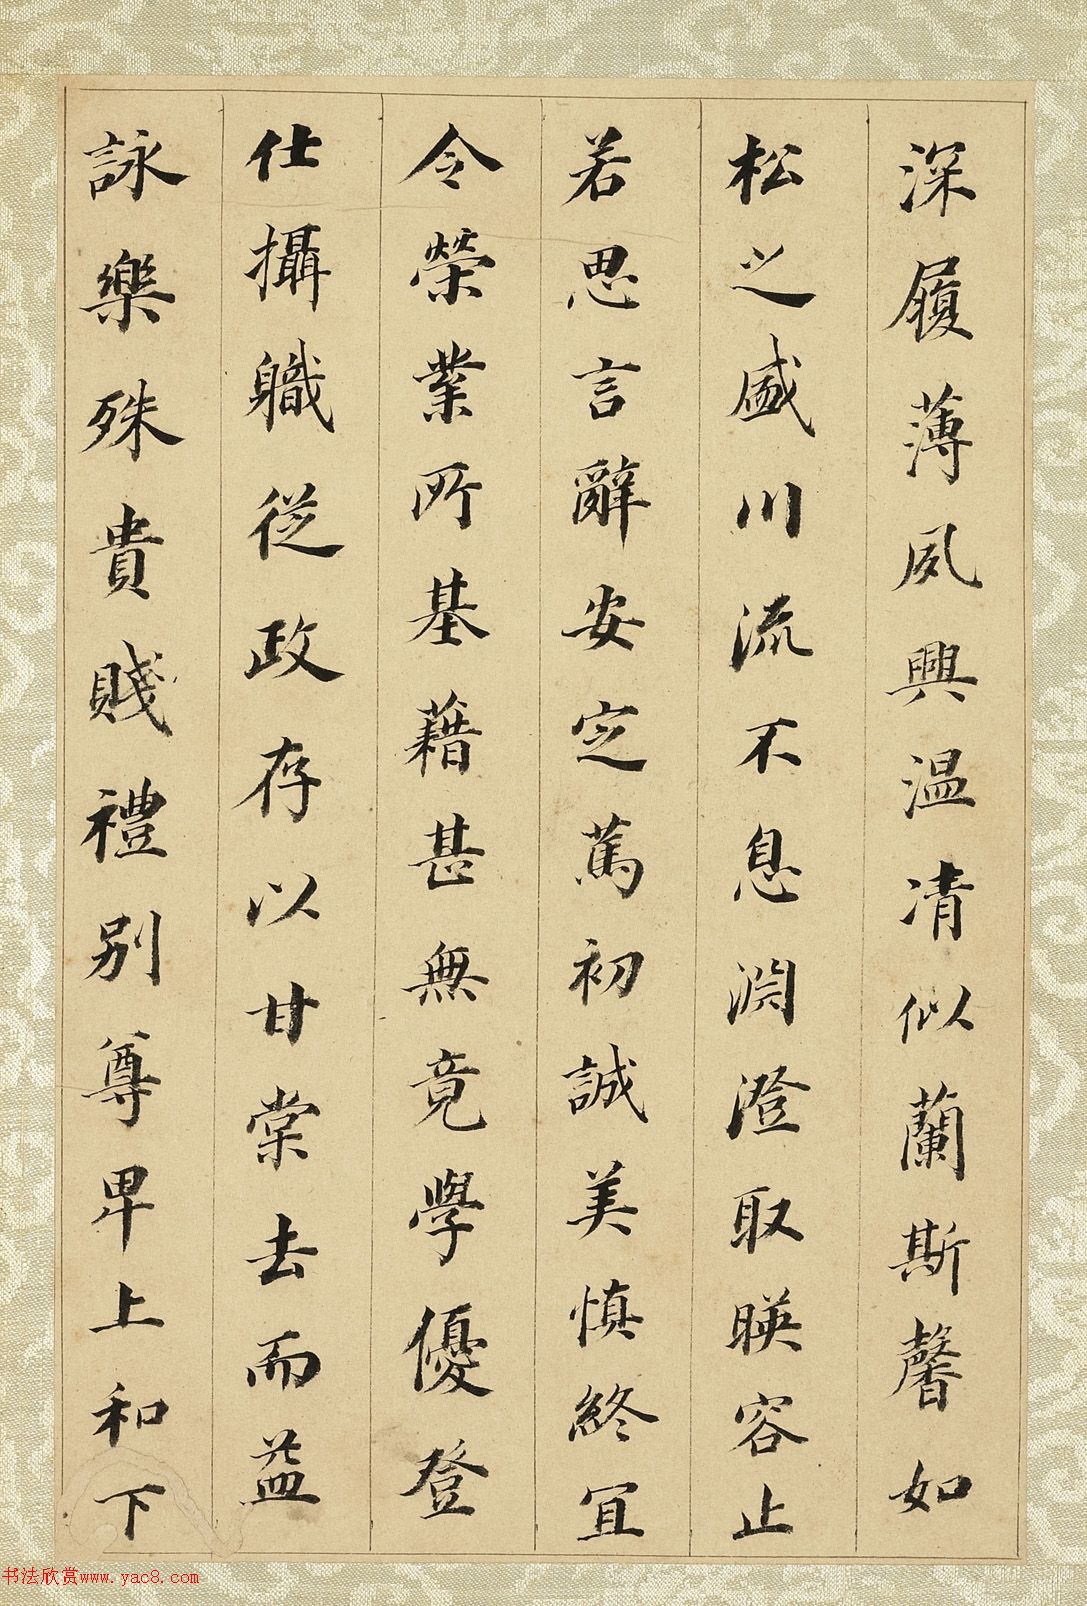 深履薄夙興温凊似蘭斯馨如
松之盛川流不息淵澄取暎容止
若思言辭安定萬初誠美慎終宜
令榮業所基藉甚無竟學優登
仕攝職從政存以甘棠去而益
詠樂殊貴賤禮別尊卑上和下
书法欣赏www.yac8.com